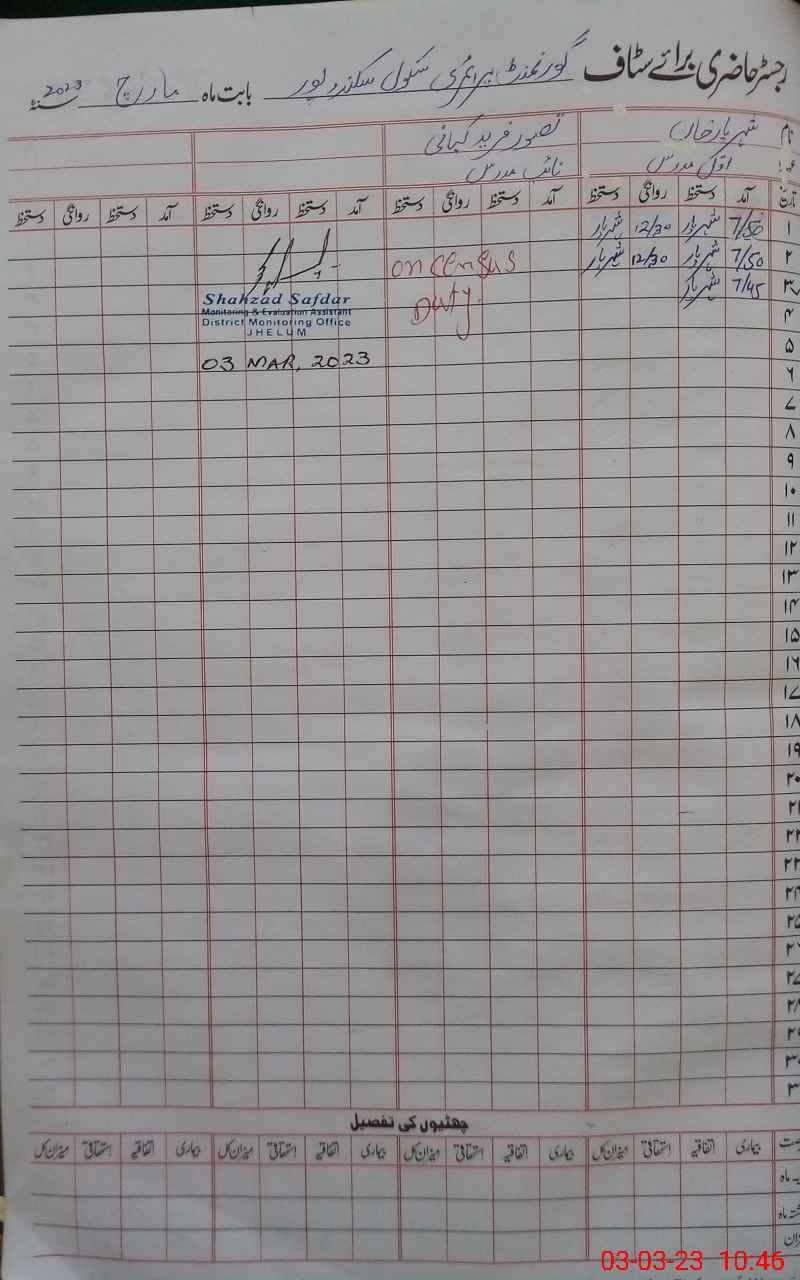 رجسٹر حاضری برائے سٹاف گورنمنٹ پرائمری سکول سکندرپور بابت ماہ مارچ سنہ 2023
نام شہریار خان تصور فرید کیانی
اول مدرس نائب مدرس
تاریخ آمد دستخط روانگی دستخط آمد دستخط روانگی دستخط آمد دستخط روانگی دستخط آمد دستخط روانگی دستخط
۱ 7/50 شہریار 12/30 شہریار
۲ 7/50 شہریار 12/30 شہریار on census
۳ 7/45 شہریار Duty.
Shahzad Safdar
Monitoring & Evaluation Assistant
District Monitoring Office
JHELUM
۴
۵
03 MAR, 2023
۶
۷
۸
۹
۱۰
۱۱
۱۲
۱۳
۱۴
۱۵
۱۶
۱۷
۱۸
۱۹
۲۰
۲۱
۲۲
۲۳
۲۴
۲۵
۲۶
۲۷
۲۸
۲۹
۳۰
۳
چھٹیوں کی تفصیل
بیماری اتفاقیہ استحقاقی میزان کل بیماری اتفاقیہ استحقاقی میزان کل بیماری اتفاقیہ استحقاقی میزان کل بیماری اتفاقیہ استحقاقی میزان کل
03-03-23 10.46